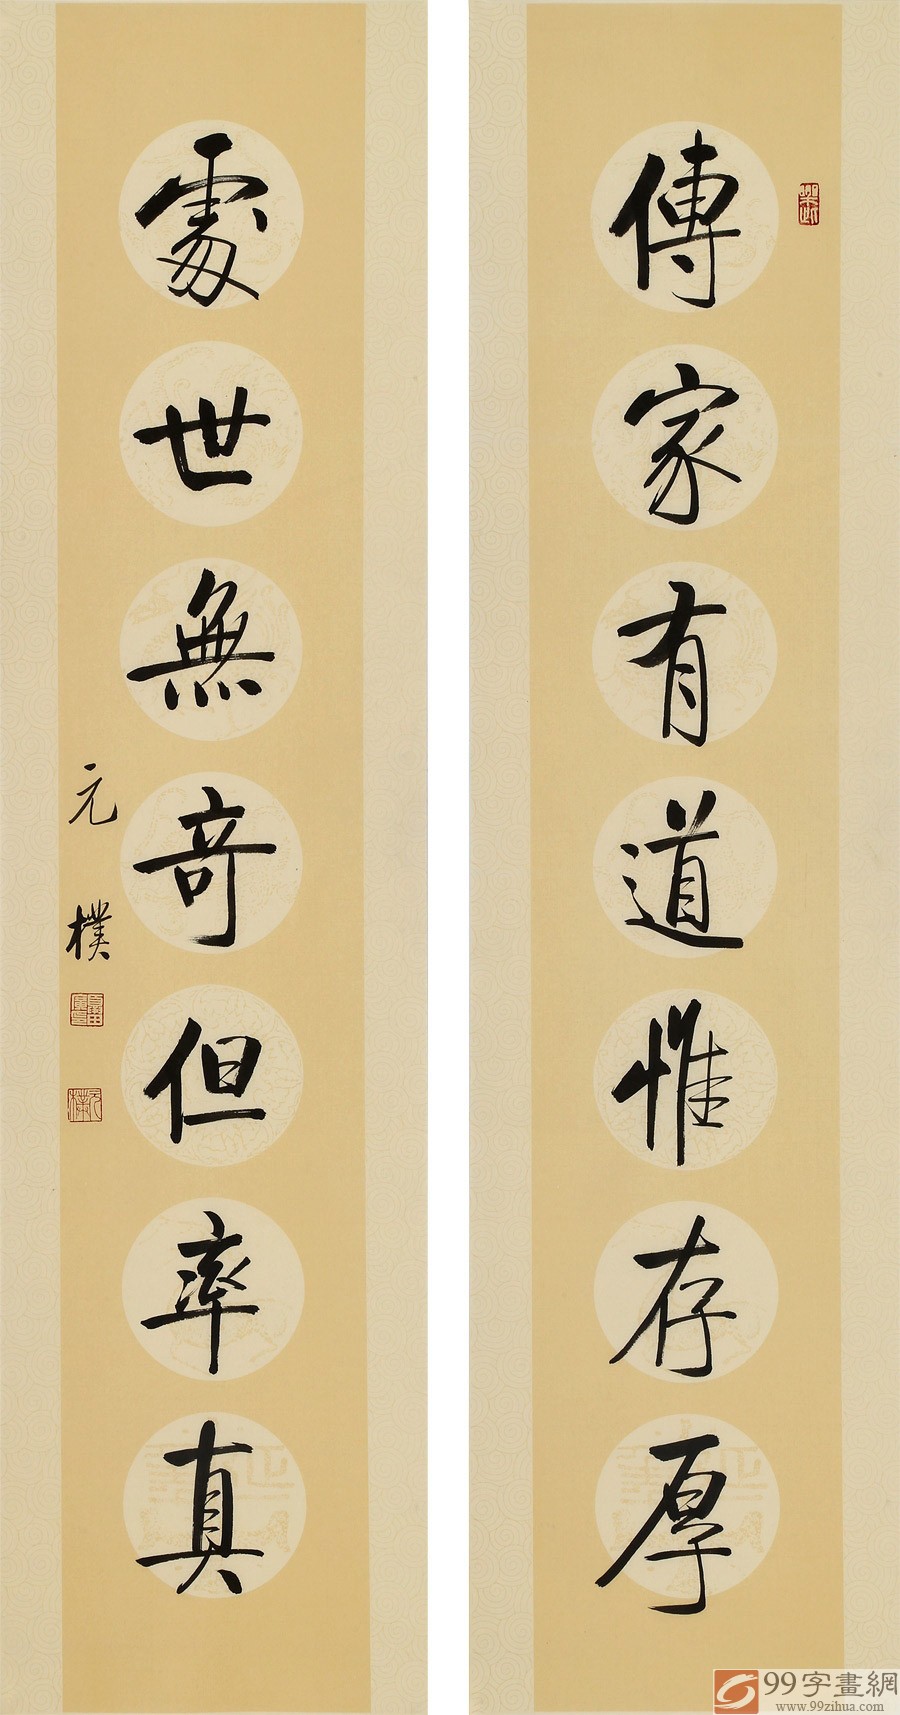 傳家有道惟存厚
處世無奇但率真
元樸
99字畫網
www.99zihua.com